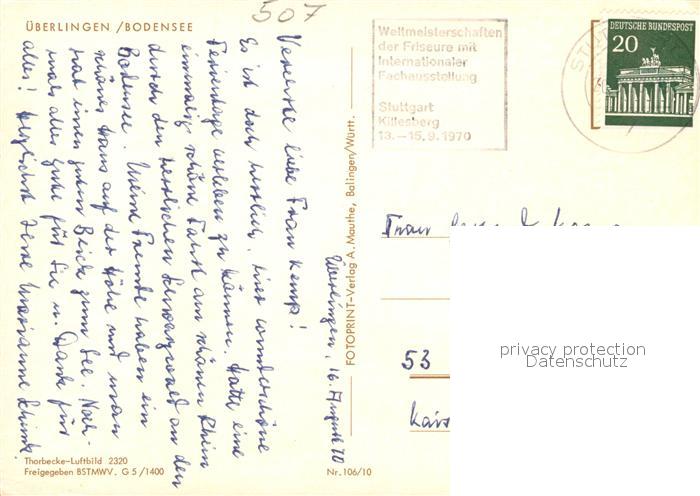 507
ÜBERLINGEN / BODENSEE
Weltmeisterschaften
der Friseure mit
Internationaler
Fachausstellung
Stuttgart
Killesberg
13.–15.9.1970
DEUTSCHE BUNDESPOST
20
Überlingen, 16. August 70
Verehrte liebe Frau Kemp!
Es ist doch herrlich, eine wunderschöne
Ferientage verleben zu können. Hatte eine
einmalig schöne Fahrt am schönen Rhein
durch den herrlichen Schwarzwald an den
Bodensee. Meine Freunde haben ein
schönes Haus auf der Höhe und man
hat einen guten Blick zum See. Noch-
mals alles Gute für Sie u. Dank für
alles! Herzlichst Ihre Marianne
FOTOPRINT–Verlag A. Mauthe, Balingen/Württ.
Frau
53
privacy protection
Datenschutz
Thorbecke–Luftbild 2320
Freigegeben BSTMWV. G 5 /1400
Nr. 106/10